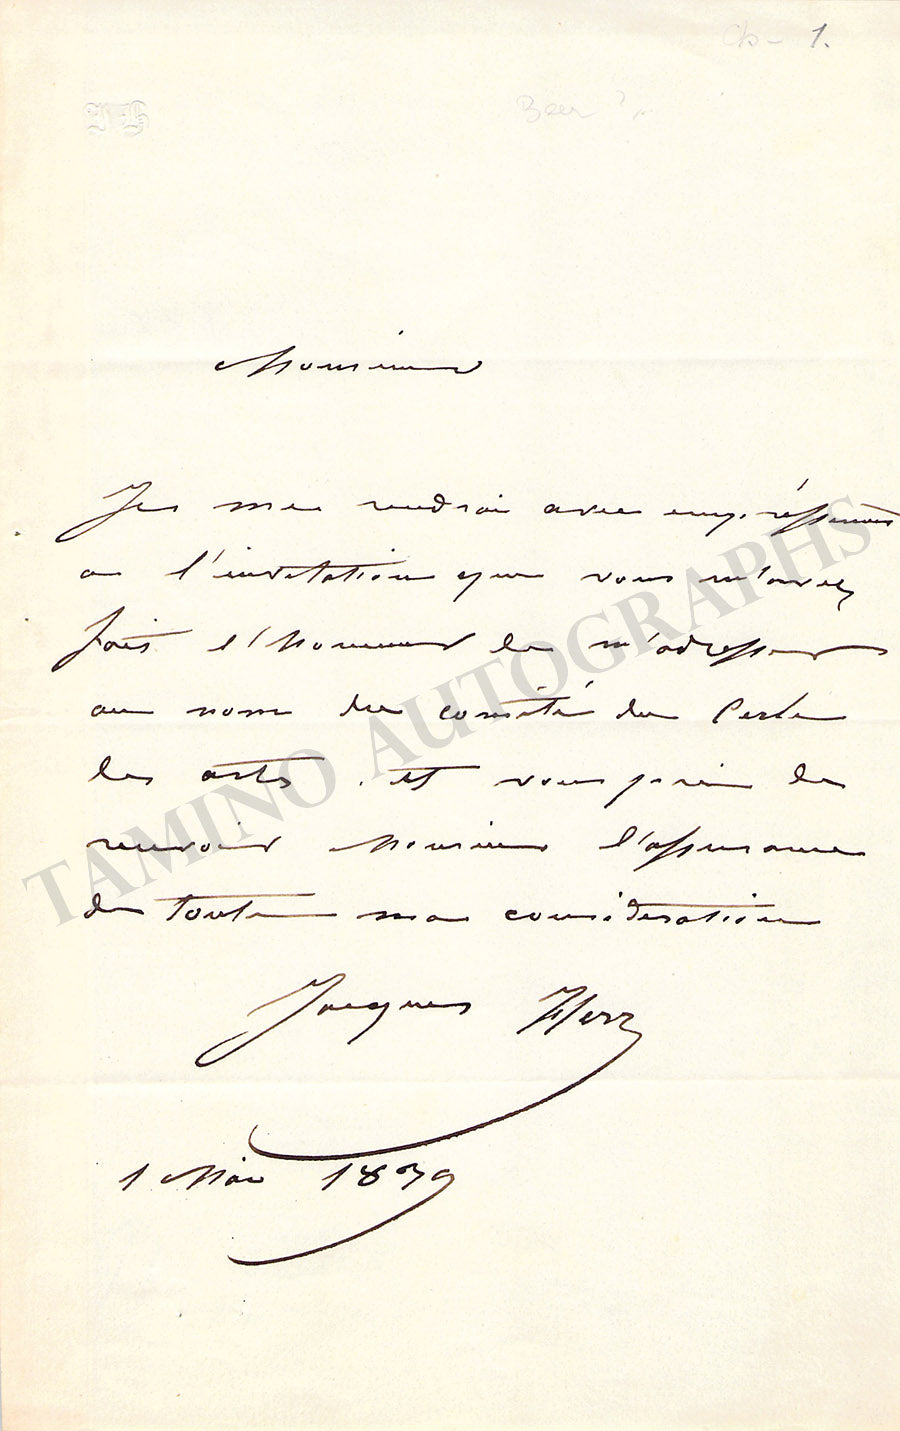 1.
Monsieur
Je me rendrai avec empréssement
a l'invitation que vous m'avez
fait l'honneur de m'adresser
au nom du comité du Cercle
des arts. et vous prie de
recevoir Monsieur l'assurance
de toute ma consideration
Jacques Herz
1 Mai 1839
TAMINO AUTOGRAPHS